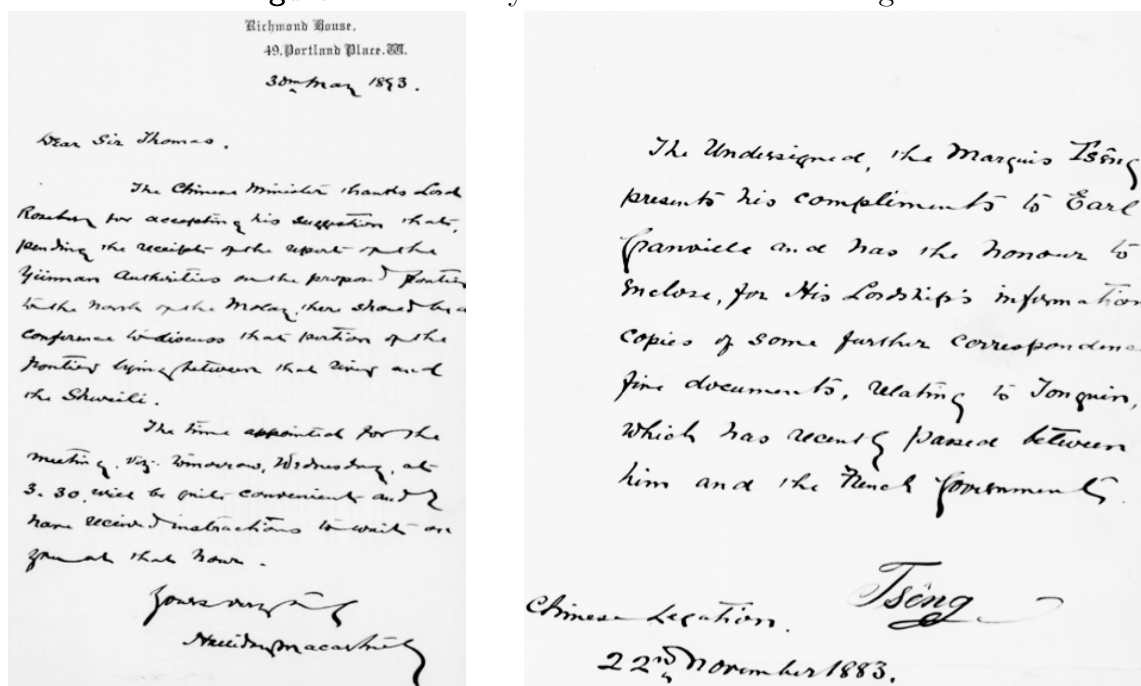 Richmond House,
49, Portland Place. W.
30th May 1893.
Dear Sir Thomas,
The Chinese Minister thanks Lord
Rosebery for accepting his suggestion that,
pending the receipt of the report of the
Yünnan Authorities on the proposed frontier
to the North of the Molay, there should be a
conference to discuss that portion of the
frontier lying between that river and
the Shweili.
The time appointed for the
meeting, viz. tomorrow, Wednesday, at
3.30, will be quite convenient and I
have received instructions to wait on
you at that hour.
Yours very
Halliday Macartney
The Undersigned, the Marquis Tsêng
presents his compliments to Earl
Granville and has the honour to
enclose, for His Lordship's information
copies of some further correspondence
five documents, relating to Tonquin,
which has recently passed between
him and the French Government.
Tsêng
Chinese Legation.
22nd November 1883.